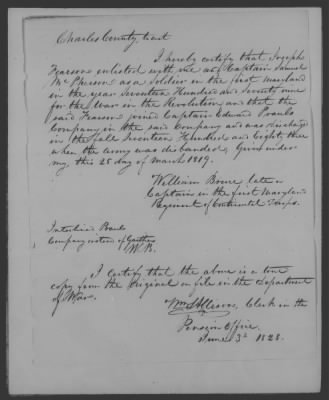 Charles County, sct
I hereby certify that Joseph
Fearson enlisted with me as Captain Samuel
Mc Pherson as a Soldier in the first Maryland
in the year Seventeen Hundred and Seventy nine
for the War in the Revolution and that the
said Fearson joined Captain Edward
Company in the said Company and was discharged
in the fall Seventeen Hundred and Eighty three
when the army was disbanded, Given under
my, this 25 day of March 1819.
William late a
Captain in the first Maryland
Regiment of Continental Troops.
Company
W. B.
I certify that the above is a true
copy from the Original on file in the Department
of War.
Clerk in the
Pension Office.
June 3d 1828.